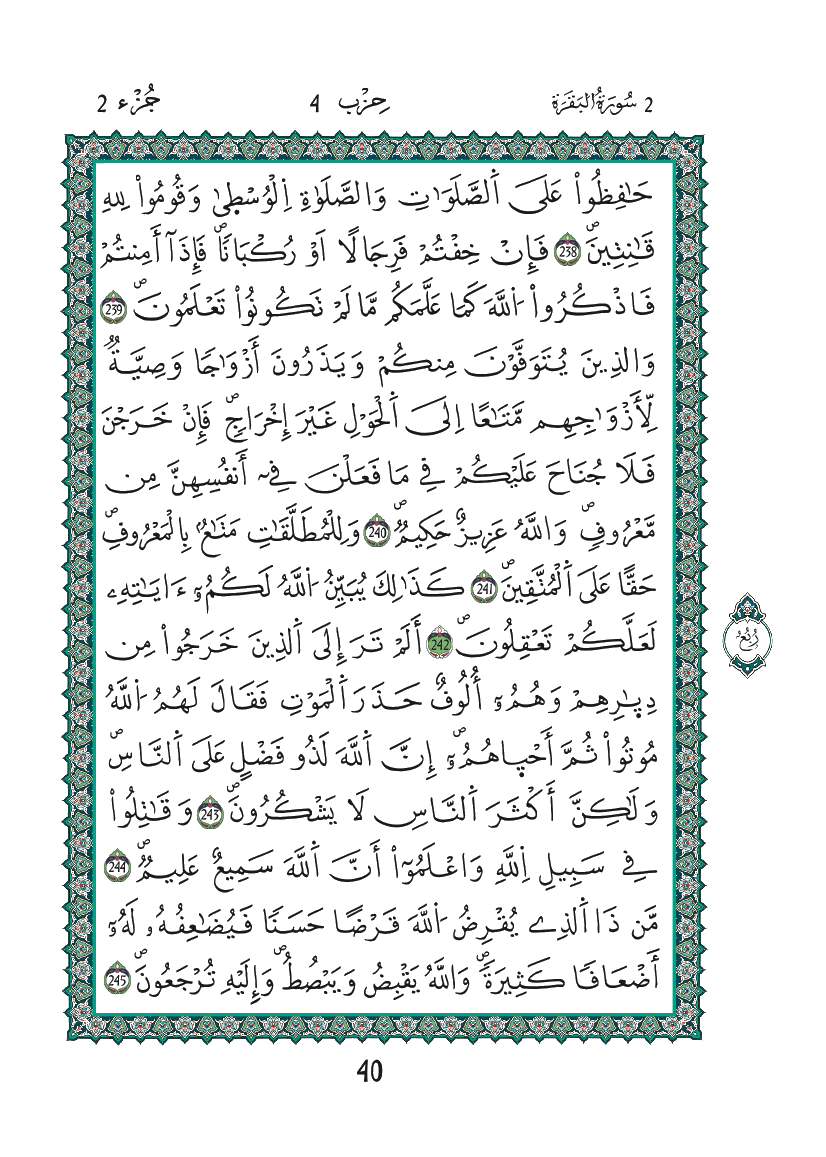 2 سُورَةُ الْبَقَرَةِ حِزْب 4 جُزْء 2
حَٰفِظُوا۟ عَلَى اَ۬لصَّلَوَٰتِ وَالصَّلَوٰةِ اِ۬لْوُسْط۪يٰ وَقُومُوا۟ لِلهِ
قَٰنِتِينَۖ 238 فَإِنْ خِفْتُمْ فَرِجَالًا اَوْ رُكْبَانٗاۖ فَإِذَآ أَمِنتُمْ
فَاذْكُرُوا۟ اُ۬للَّهَ كَمَا عَلَّمَكُم مَّا لَمْ تَكُونُوا۟ تَعْلَمُونَۖ 239
وَالذِينَ يُتَوَفَّوْنَ مِنكُمْ وَيَذَرُونَ أَزْوَٰجٗا وَصِيَّةٞۖ
لِّأَزْوَٰجِهِم مَّتَٰعًا اِلَى اَ۬لْحَوْلِ غَيْرَ إِخْرَاجٖۖ فَإِنْ خَرَجْنَ
فَلَا جُنَاحَ عَلَيْكُمْ فِے مَا فَعَلْنَ فِےٓ أَنفُسِهِنَّ مِن
مَّعْرُوفٖۖ وَاللَّهُ عَزِيزٌ حَكِيمٞۖ 240 وَلِلْمُطَلَّقَٰتِ مَتَٰعُۢ بِالْمَعْرُوفِۖ
حَقًّا عَلَى اَ۬لْمُتَّقِينَۖ 241 كَذَٰلِكَ يُبَيِّنُ اُ۬للَّهُ لَكُمُۥٓ ءَايَٰتِهِۦ
لَعَلَّكُمْ تَعْقِلُونَۖ 242 أَلَمْ تَرَ إِلَى اَ۬لذِينَ خَرَجُوا۟ مِن
دِيٰ۪رِهِمْ وَهُمُۥٓ أُلُوفٌ حَذَرَ اَ۬لْمَوْتِ فَقَالَ لَهُمُ اُ۬للَّهُ
مُوتُوا۟ ثُمَّ أَحْي۪اهُمُۥٓۖ إِنَّ اَ۬للَّهَ لَذُو فَضْلٍ عَلَى اَ۬لنَّاسِۖ
وَلَٰكِنَّ أَكْثَرَ اَ۬لنَّاسِ لَا يَشْكُرُونَۖ 243 وَقَٰتِلُوا۟
فِے سَبِيلِ اِ۬للَّهِ وَاعْلَمُوٓا۟ أَنَّ اَ۬للَّهَ سَمِيعٌ عَلِيمٞۖ 244
مَّن ذَا اَ۬لذِے يُقْرِضُ اُ۬للَّهَ قَرْضًا حَسَنٗا فَيُضَٰعِفُهُۥ لَهُۥٓ
أَضْعَافٗا كَثِيرَةٗۖ وَاللَّهُ يَقْبِضُ وَيَبْصُطُۖ وَإِلَيْهِ تُرْجَعُونَۖ 245
رُبُعُ
40